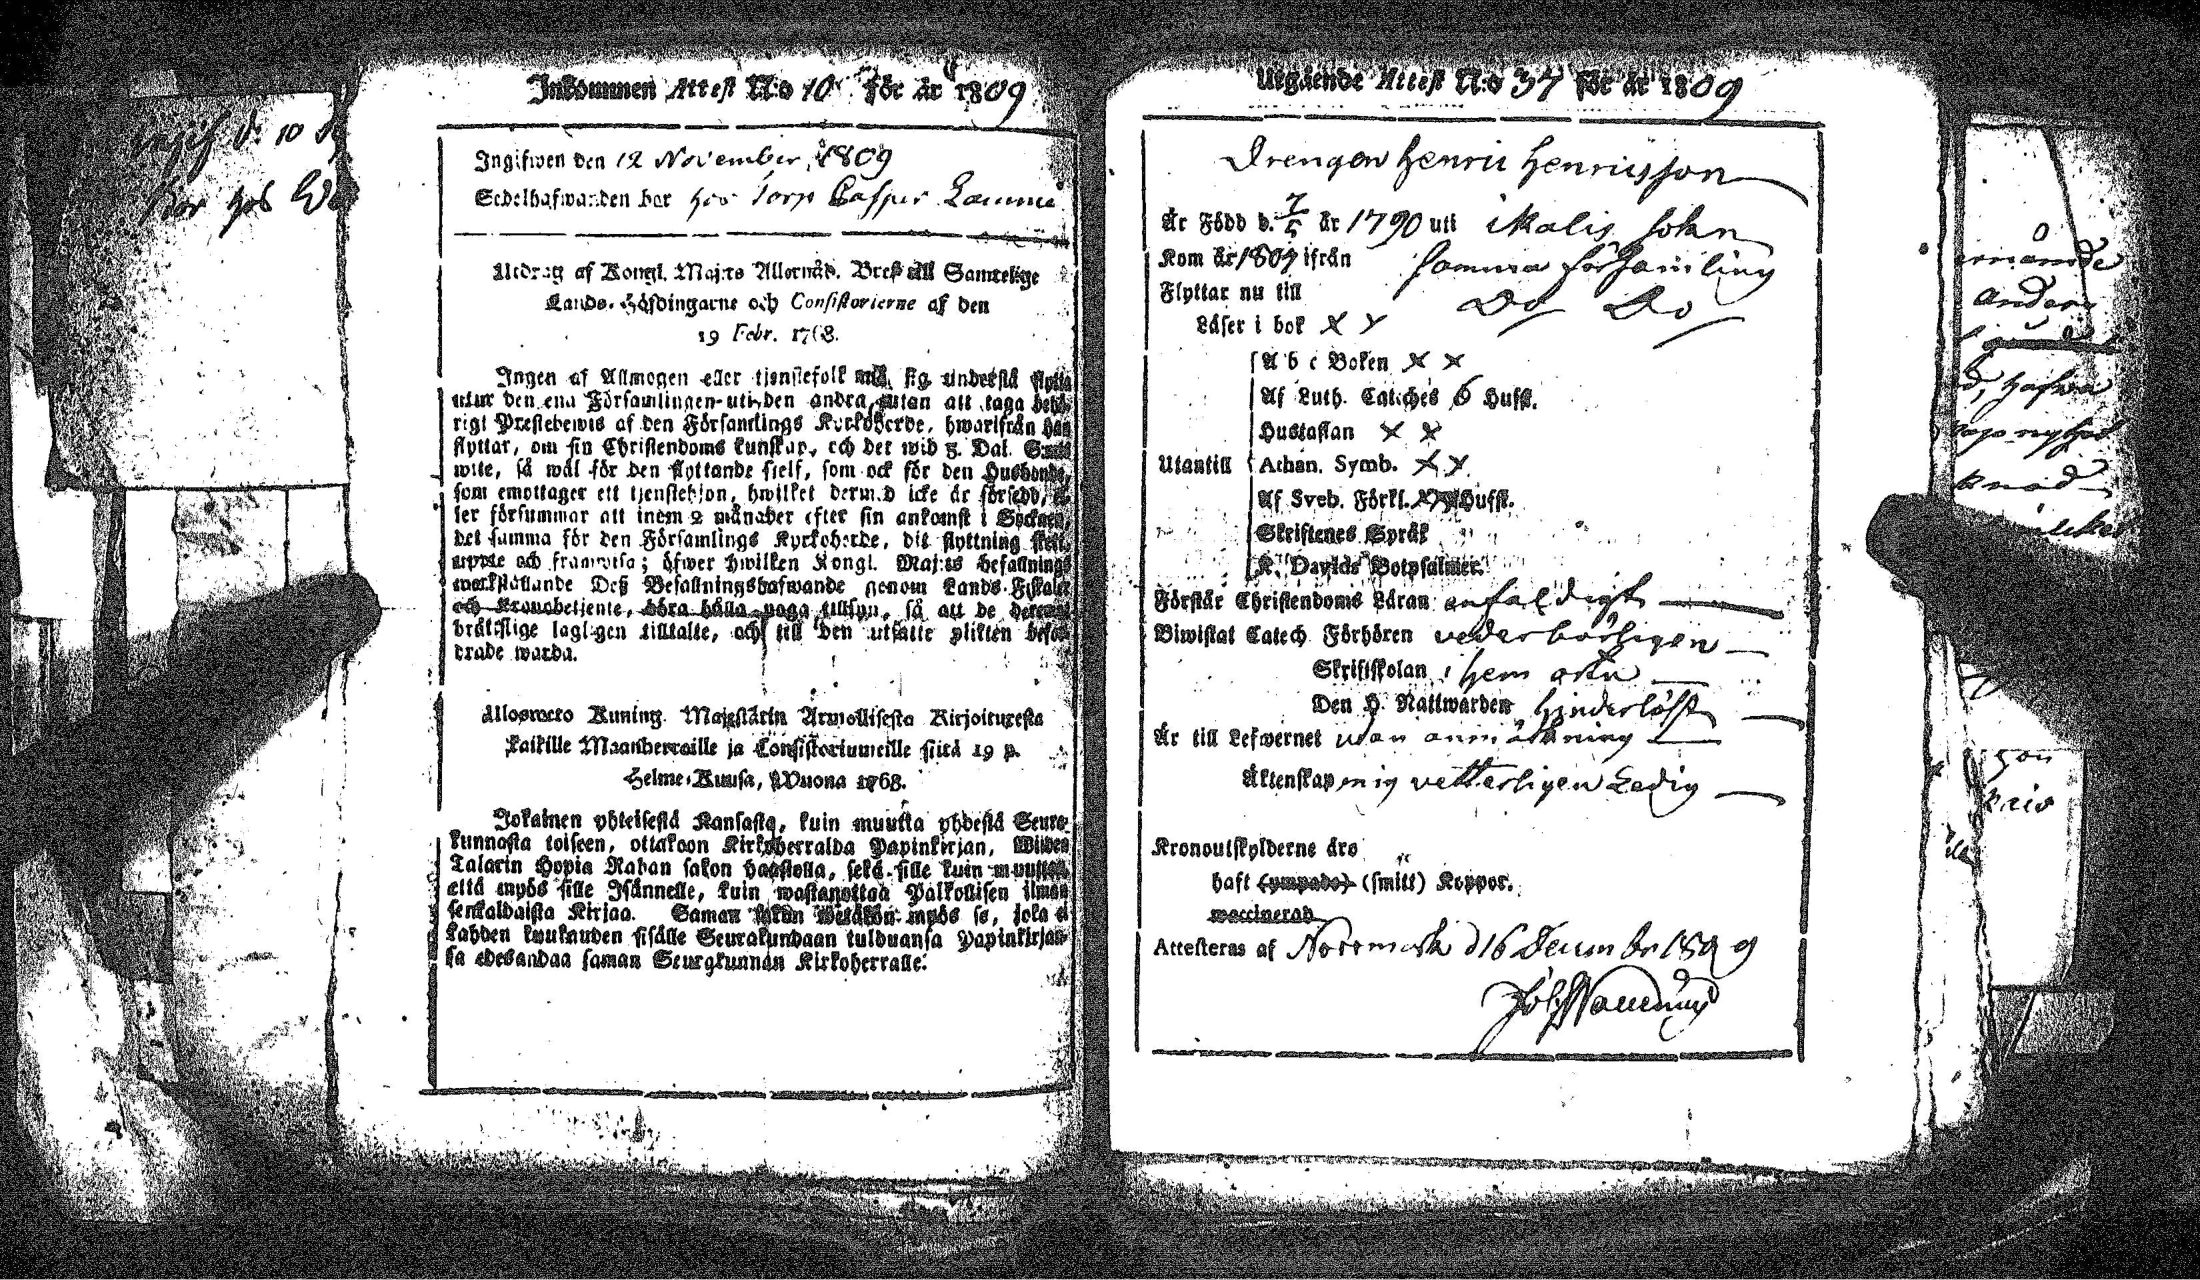 Inkommen Attest N:o 10 för år 1809
Ingifwen den 12 November 1809
Sedelhafwanden bor hos Torp Casper
Utdrag af Kongl. Maj:ts Allernåd. Bref till Samtelige
Lands-Höfdingarne och Consistorierne af den
19 Febr. 1768.
Ingen af Allmogen eller tjenstefolk må sig understå flytta
utur den ena Församlingen uti den andra, utan att taga behö-
rigt Prestebewis af den Församlings Kyrkoherde, hwarifrån han
flyttar, om sin Christendoms kunskap, och det wid 3. Dal. Smts
wite, så wäl för den flyttande sjelf, som ock för den Husbonde,
som emottager ett tjenstehjon, hwilket dermed icke är försedd, el-
ler försummar att inem 2 månader efter sin ankomst i Socknen,
det samma för den Församlings Kyrkoherde, dit flyttning skett,
uppte och framwisa; öfwer hwilken Kongl. Maj:ts befallnings
werkställande Deß Befallningshafwande genom Lands-Fiskaler
och Kronobetjente, böra hålla noga tillsyn, så att de deremot
brätslige lagligen tilltalte, och till den utsatte plikten befor-
drade warda.
Ulosweto Kuning. Majestätin Armollisesta Kirjoituxesta
kaikille Maanherroille ja Consistoriumeille siitä 19 p.
Helme-Kuusa, Wuona 1768.
Jokainen yhteisestä Kansasta, kuin muutta yhdestä Seura-
kunnasta toiseen, ottakoon Kirkoherralda Papinkirjan, Wiiden
Talarin Hopia Rahan sakon haastolla, sekä sille kuin muuttaa
että myös sille Isännelle, kuin wastanottaa Palkollisen ilman
senkaldaista Kirjaa. Saman sakon wetäkön myös se, joka ei
kahden kuukauden sisälle Seurakundaan tulduansa Papinkirjan-
sa edesandaa saman Seurakunnan Kirkoherralle.
Utgående Attest N:o 37 för år 1809
Drengen Henric Henricsson
Är Född d. 7/5 år 1790 uti Kalis Sokn
Kom år 1809 ifrån samma församling
Flyttar nu till Do Do
Läser i bok x x
A b c Boken x x
Af Luth. Cateches 6 Hufst.
Hustaflan x x
Utantill Athan. Symb. x x
Af Sveb. Förkl. Hufst.
Skriftenes Språk
K. Davids Botpsalmer.
Förstår Christendoms Läran enfaldigt
Biwistat Catech. Förhören vederbörligen
Skriftskolan i hem orten
Den H. Nattwarden hinderlöst
Är till Lefwernet utan anmärkning
Äktenskap mig vetterligen Ledig
Kronoutskylderne äro
haft (ympade) (smitt) Koppor.
vaccinerad
Attesteras af Norrmark d 16 Decembr 1809